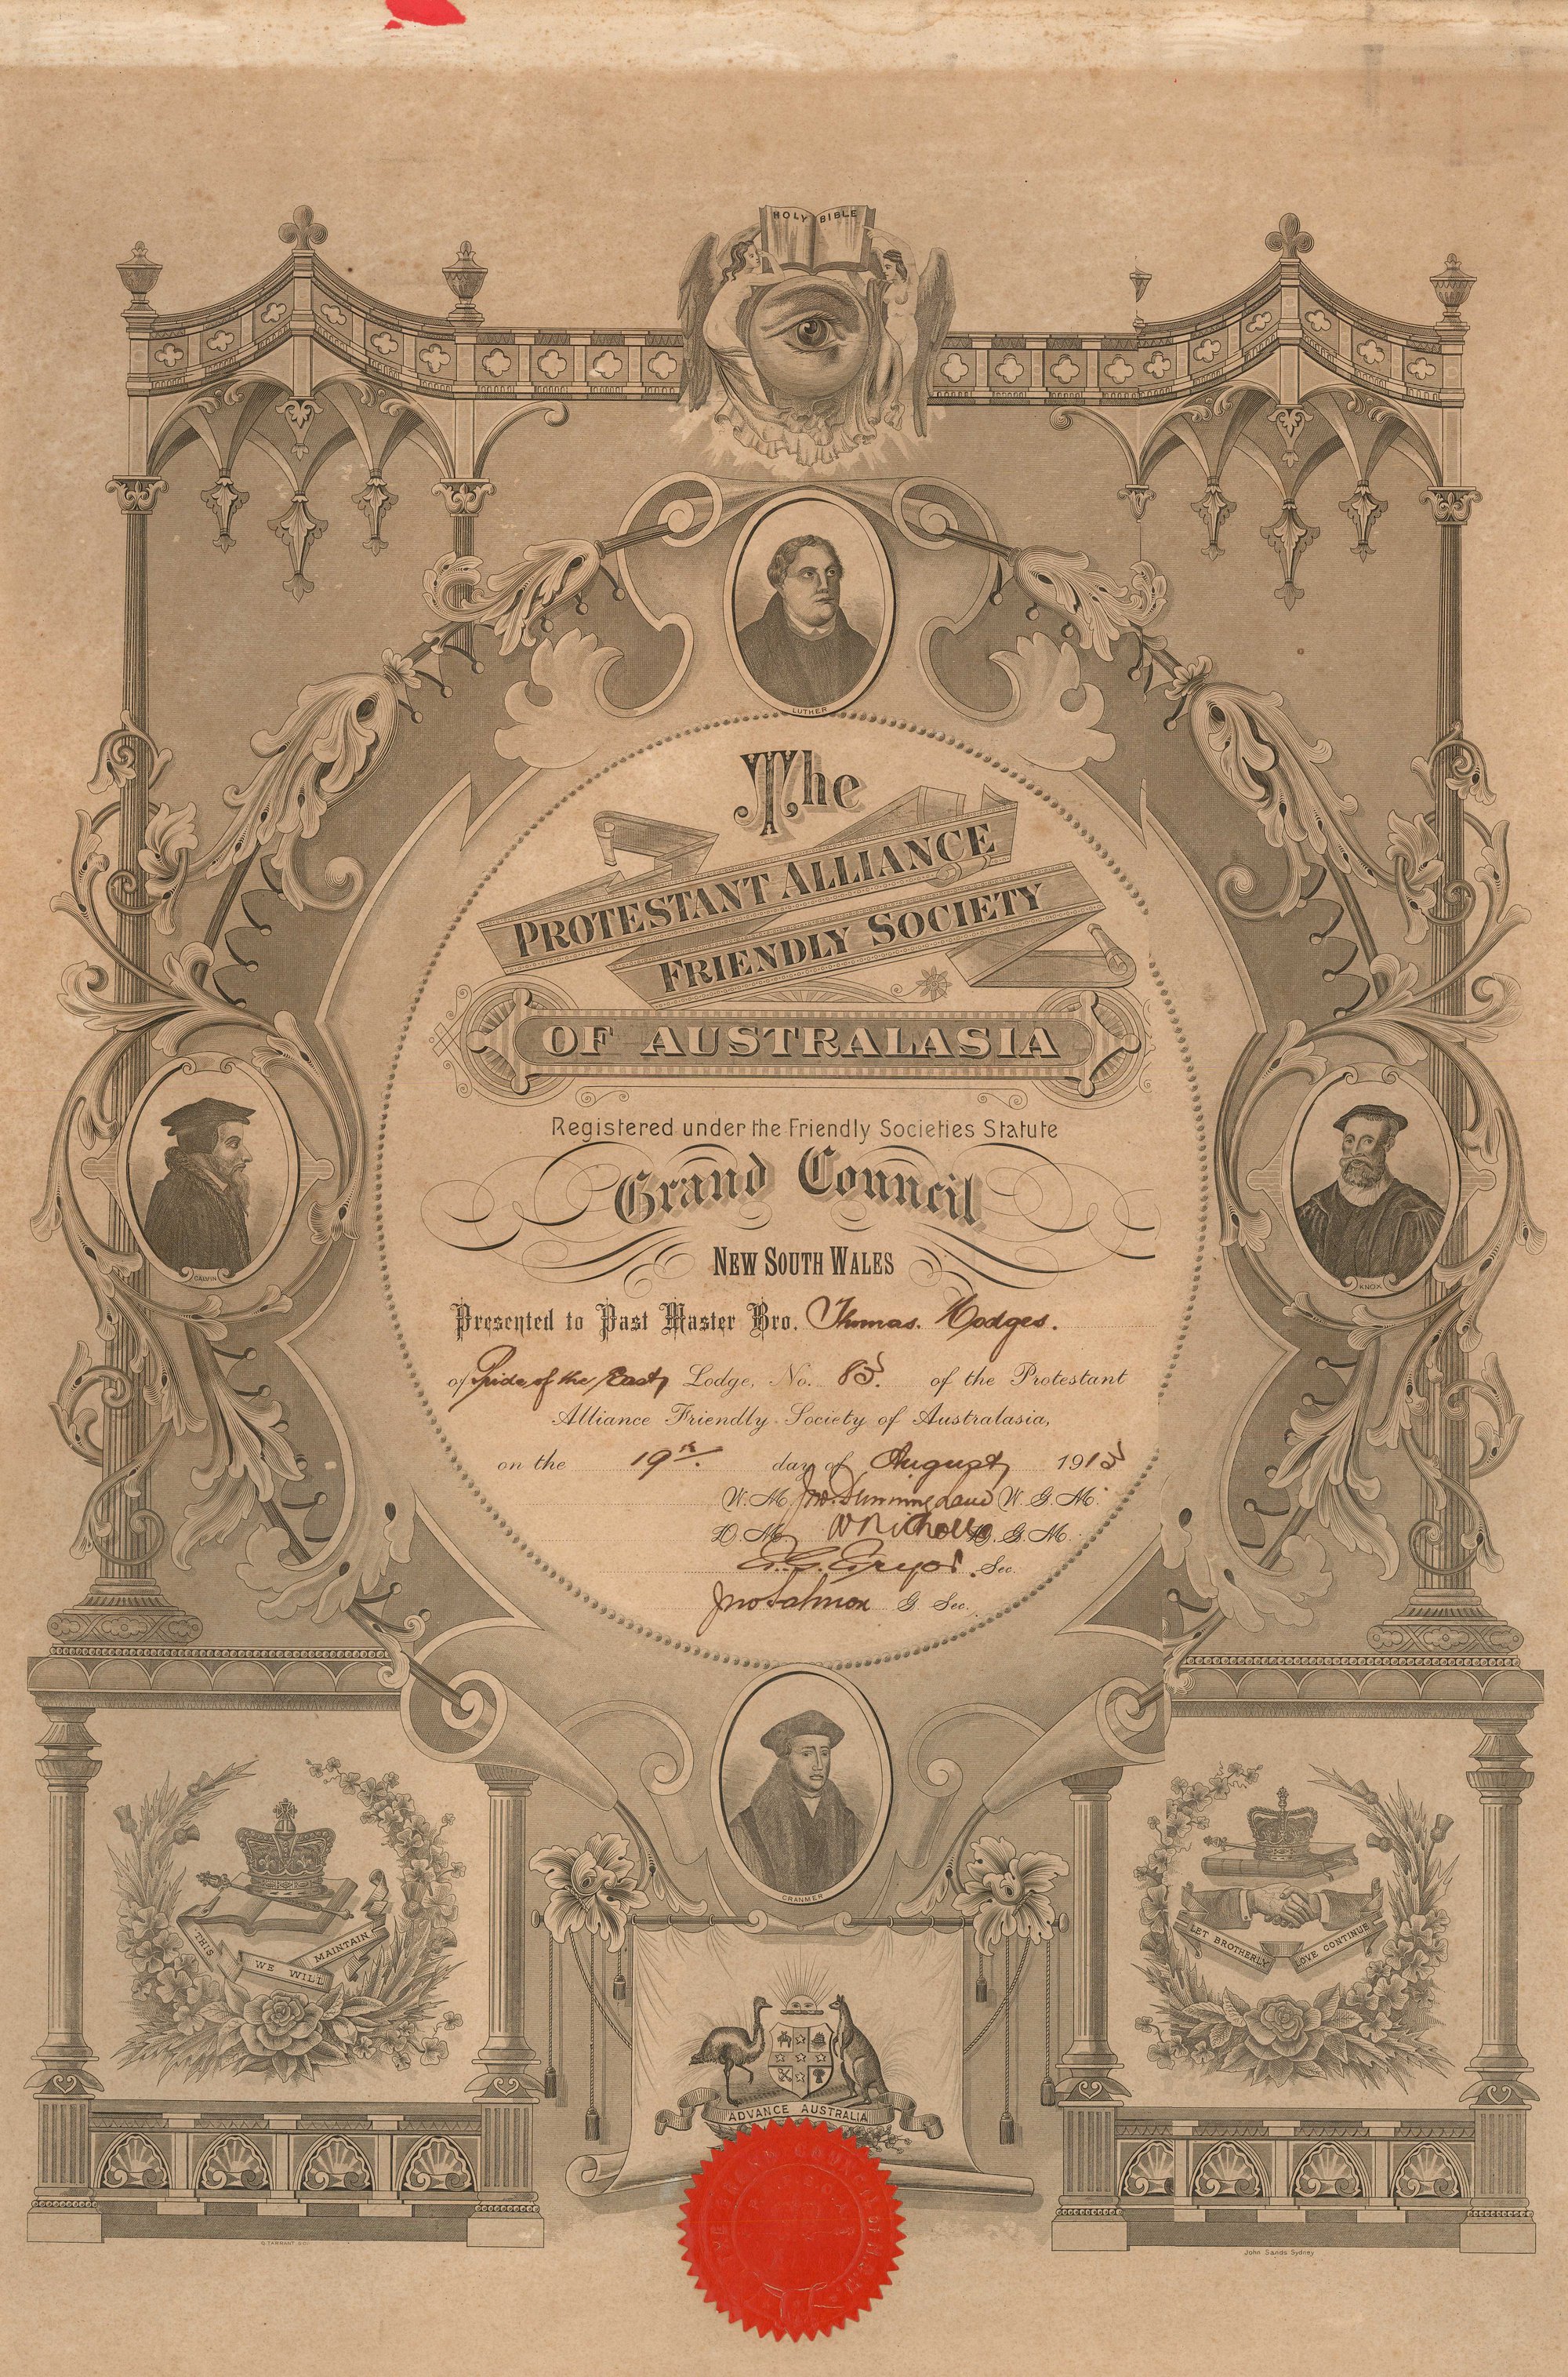 HOLY BIBLE
LUTHER
The
PROTESTANT ALLIANCE
FRIENDLY SOCIETY
OF AUSTRALASIA
Registered under the Friendly Societies Statute
Grand Council
NEW SOUTH WALES
CALVIN
KNOX
Presented to Past Master Bro. Thomas. Hodges.
of Pride of the East, Lodge, No. 85. of the Protestant
Alliance Friendly Society of Australasia,
on the 19th. day of August 191
W. M. Jno. W. G. M.
D. M. W Nicholls D. G. M.
Sec.
Jno Salmon G. Sec.
CRANMER
THIS WE WILL MAINTAIN
LET BROTHERLY LOVE CONTINUE
ADVANCE AUSTRALIA
THE GRAND COUNCIL OF N.S.W.
John Sands Sydney